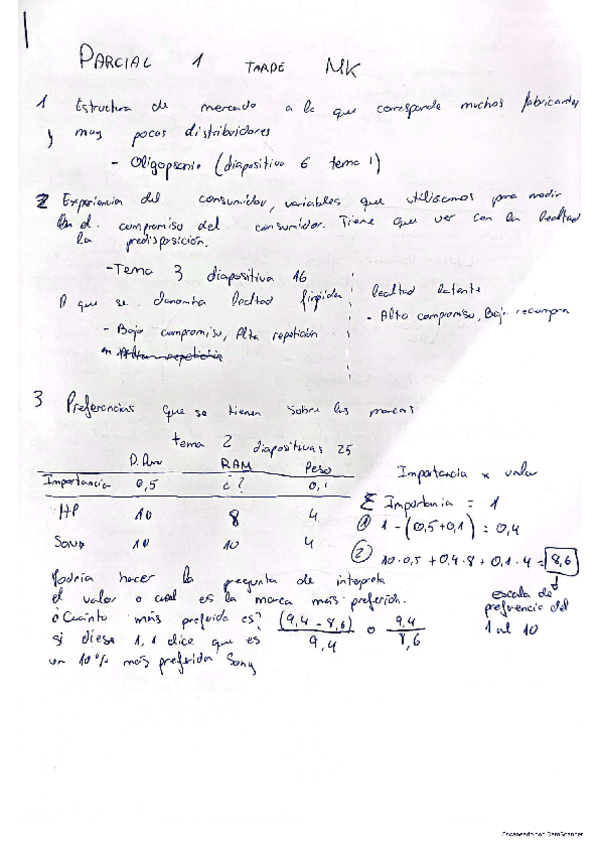 PARCIAL 1 TARDE MK
1 Estructura de mercado a la que corresponde muchos fabricantes
y muy pocos distribuidores
- Oligopsonio (diapositiva 6 tema 1)
2 Experiencia del consumidor, variables que utilizamos para medir
el d. compromiso del consumidor. Tiene que ver con la lealtad
la predisposición.
- Tema 3 diapositiva 16
A que se denomina lealtad fingida
- Bajo compromiso, Alta repetición
en
lealtad latente
- Alto compromiso, Baja recompra
3 Preferencias que se tienen sobre las marcas
tema 2 diapositivas 25
D. Duro RAM Peso
Importancia 0,5 ¿? 0,1
HP 10 8 4
Sony 10 10 4
Importancia x valor
Σ Importancia = 1
① 1 - (0,5+0,1) = 0,4
② 10·0,5 + 0,4·8 + 0,1·4 = 8,6
escala de
preferencia del
1 al 10
Podría hacer la pregunta de interpreta
el valor o cual es la marca más preferida.
¿Cuánto más preferida es? (9,4 - 8,6) / 9,4 o 9,4 / 8,6
si diese 1,1 dice que es
un 10% más preferida Sony
Escaneado con CamScanner